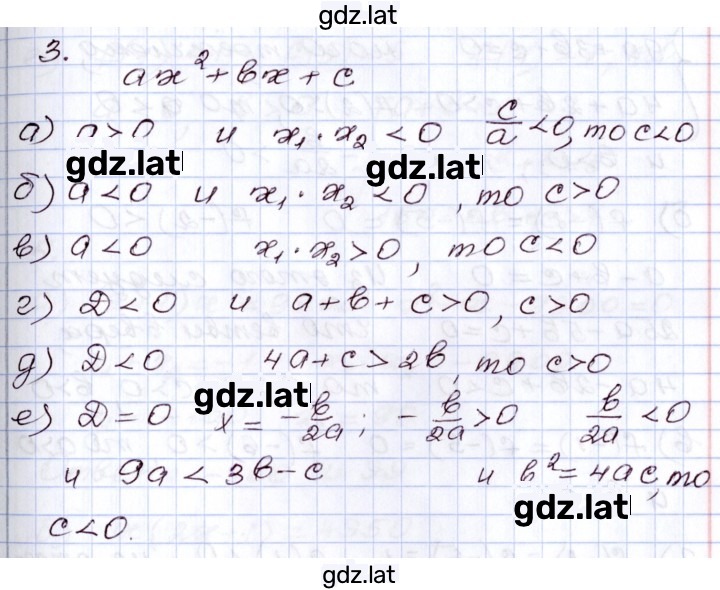 gdz.lat
3.
ax² + bx + c
а) a > 0 и x₁ · x₂ < 0 c/a < 0, то c < 0
gdz.lat gdz.lat
б) a < 0 и x₁ · x₂ < 0, то c > 0
в) a < 0 x₁ · x₂ > 0, то c < 0
г) D < 0 и a + b + c > 0, c > 0
д) D < 0 4a + c > 2b, то c > 0
gdz.lat
е) D = 0 x = - b/2a ; - b/2a > 0 b/2a < 0
и 9a < 3b - c и b² = 4ac, то
gdz.lat
c < 0.
gdz.lat